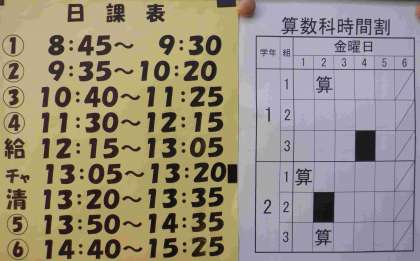 日課表
① 8:45～ 9:30
② 9:35～10:20
③ 10:40～11:25
④ 11:30～12:15
給 12:15～13:05
チャ 13:05～13:20
清 13:20～13:35
⑤ 13:50～14:35
⑥ 14:40～15:25
算数科時間割
学年 組 金曜日
1 2 3 4 5 6
1
1 算
2
3
2
1 算
2
3 算